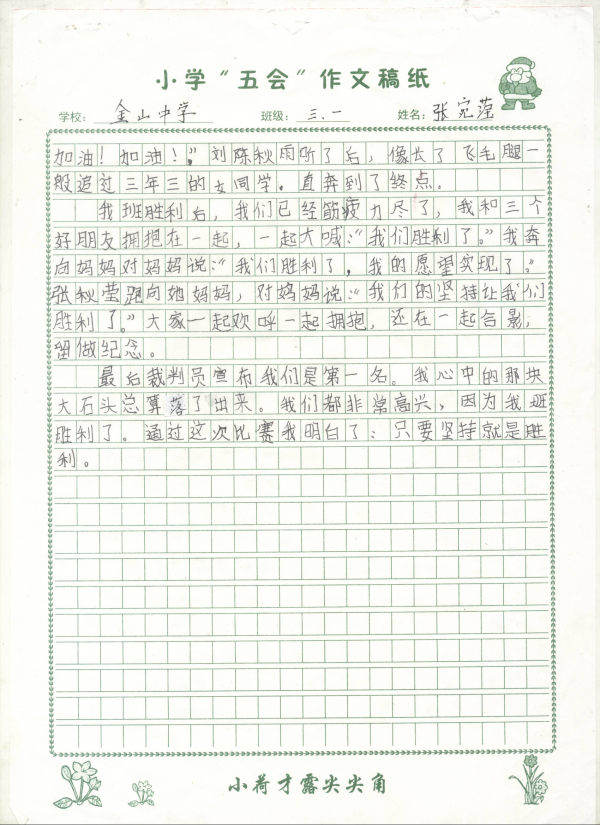 小学“五会”作文稿纸
学校: 金山中学 班级: 三.一 姓名: 张宛莹
加油！加油！”刘陈秋雨听了后，像长了飞毛腿一
般追过三年三的女同学。直奔到了终点。
我班胜利后，我们已经筋疲力尽了，我和三个
好朋友拥抱在一起，一起大喊：“我们胜利了。”我奔
向妈妈对妈妈说：“我们胜利了，我的愿望实现了。”
张秋莹跑向她妈妈，对妈妈说：“我们的坚持让我们
胜利了。”大家一起欢呼一起拥抱，还在一起合影，
留做纪念。
最后裁判员宣布我们是第一名。我心中的那块
大石头总算落了出来。我们都非常高兴，因为我班
胜利了。通过这次比赛我明白了：只要坚持就是胜
利。
小荷才露尖尖角